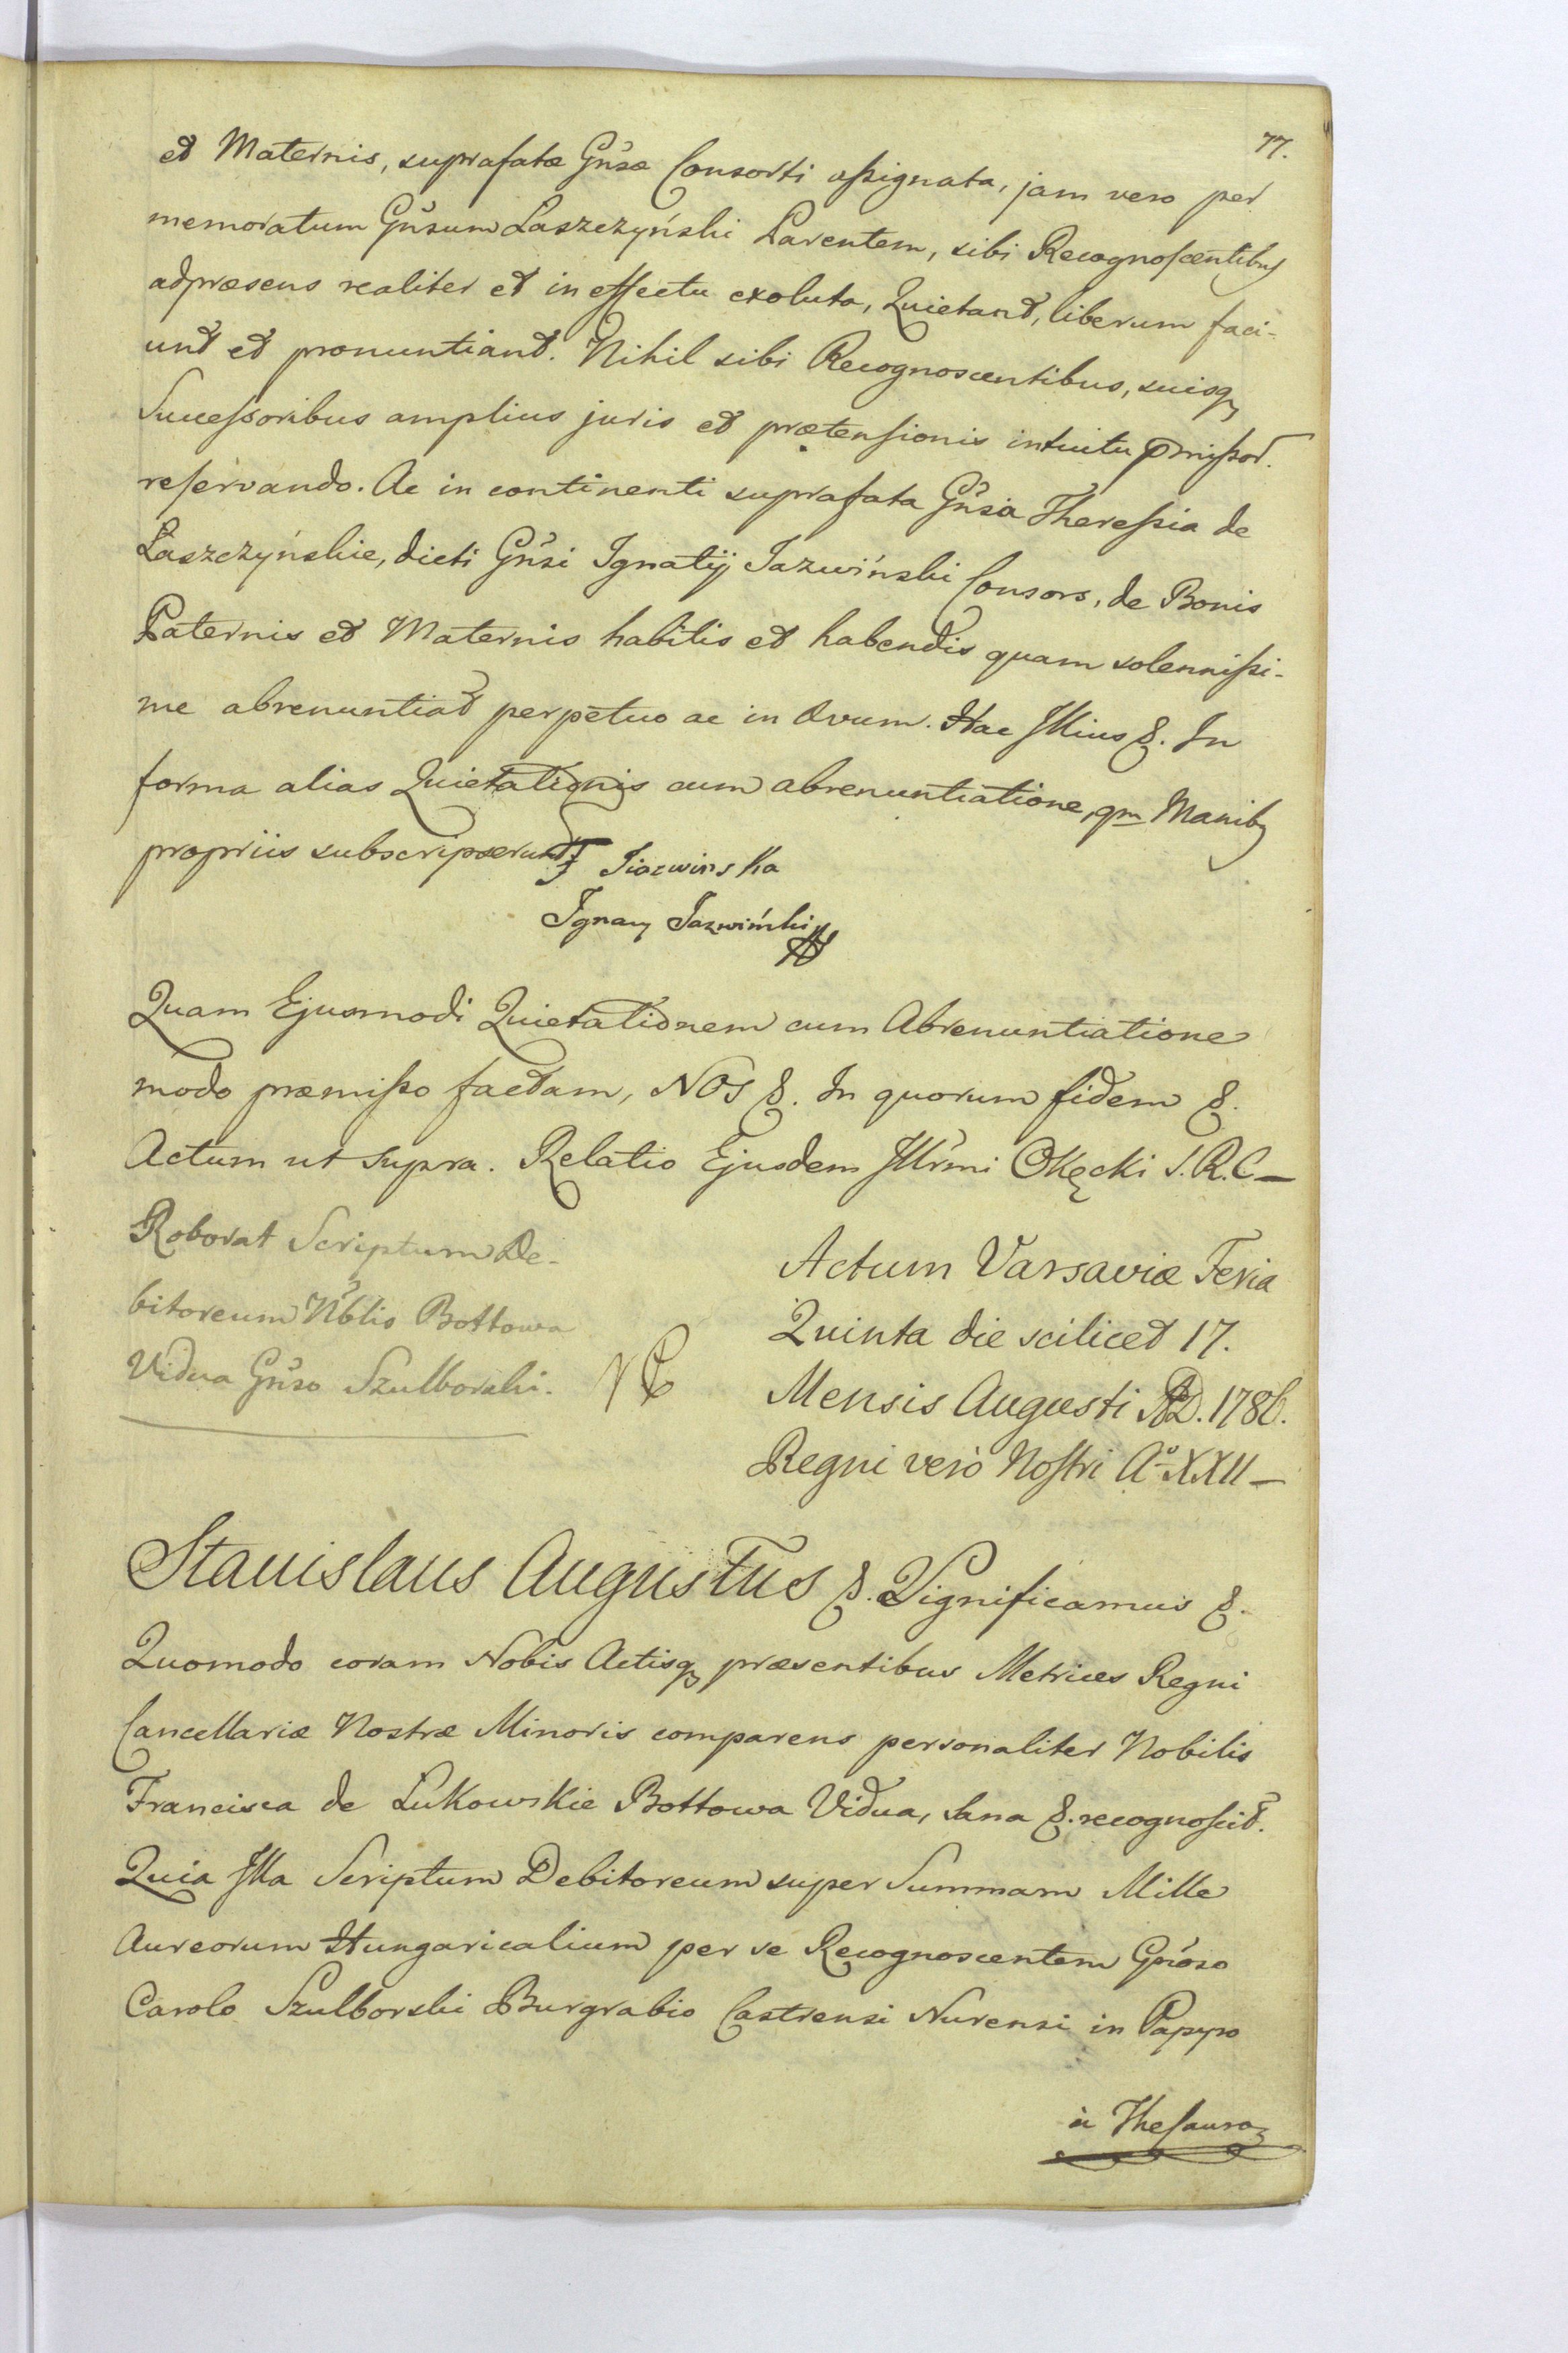 77.
et Maternis, suprafatæ Gnsæ Consorti aſsignata, jam vero per
memoratum Gnsum Laszczyński Parentem, sibi Recognoſcentibus
adpræsens realiter et in effectu exoluta, Quietant, liberum faci-
unt et pronuntiant. Nihil sibi Recognoscentibus, suisq
Succeſsoribus amplius juris et prætenſionis intuitu pmiſsor.
reſervando. Ac in continenti suprafata Gnsa Thereſsia de
Łaszczyńskie, dicti Gnsi Ignatij Jazwiński Consors, de Bonis
Paternis et Maternis habitis et habendis quam solenniſsi-
me abrenuntiat perpetuo ac in Ævum. Hac Illius &. In
forma alias Quietationis cum abrenuntiatione, qm Manibq
propriis subscripserunt
T Jiazwinska
Ignacy Jazwiński
Quam Ejusmodi Quietationem cum Abrenuntiatione
modo præmiſso factam, NOS &. In quorum fidem &.
Actum ut supra. Relatio Ejusdem Illrmi Okęcki S.R.C—
Roborat Scriptum De-
bitoreum Nblis Bottowa
Vidua Gnso Szulborski.
Actum Varsaviæ Feria
Quinta die scilicet 17.
Mensis Augusti AD. 1786.
Regni verò Noſtri Aº XXII—
Stanislaus Augustus &. Significamus &.
Quomodo coram Nobis Actisq præsentibus Metrices Regni
Cancellariæ Nostræ Minoris comparens personaliter Nobilis
Francisca de Łukowskie Bottowa Vidua, sana &. recognoſcit.
Quia Illa Scriptum Debitoreum super Summam Mille
Aureorum Hungaricalium per se Recognoscentem Gnoso
Carolo Szulborski Burgrabio Castrensi Nurensi in Papyro
à Theſauro